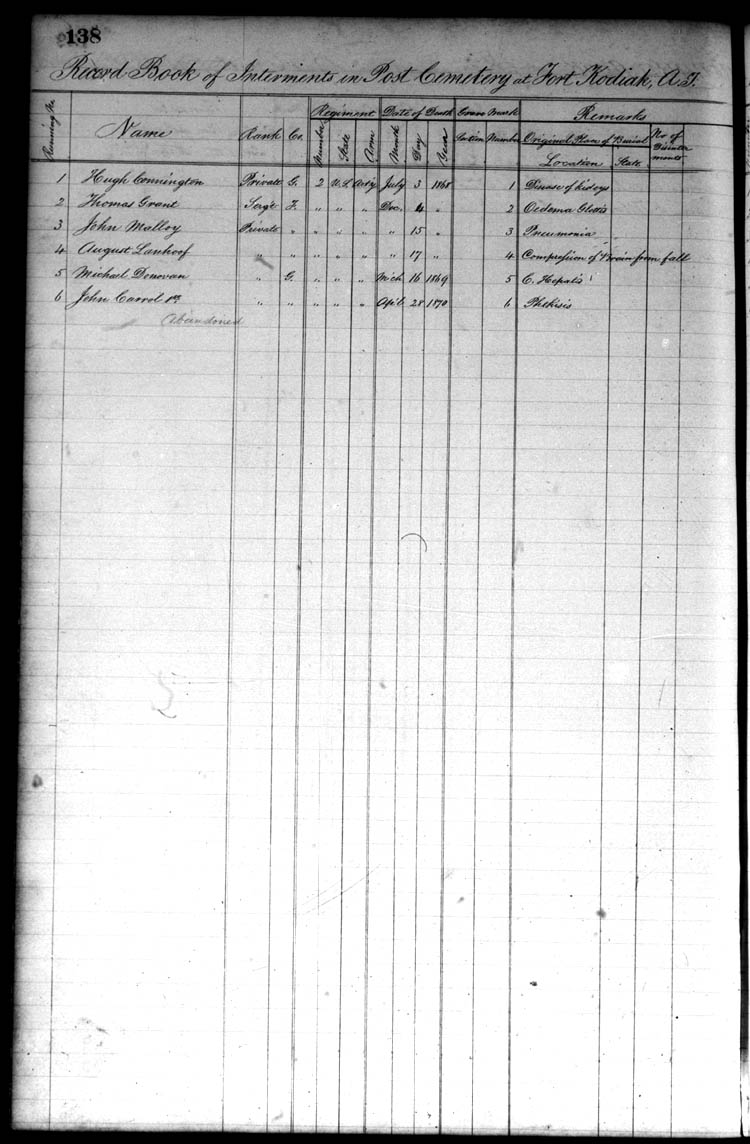 138
Record Book of Interments in Post Cemetery at Fort Kodiak, A.T.
Running No. Name Rank Co. Regiment Date of Death Grave Mark Remarks
Number State Arm Month Day Year Section Number Original Place of Burial No of Disinterments
Location State
1 Hugh Connington Private G. 2 U.S. Art'y July 3 1868 1 Disease of kideys
2 Thomas Grant Serg't F. " " " Dec. 4 " 2 Oedema Glottis
3 John Malloy Private " " " " " 15 " 3 Pneumonia
4 August Lanhoof " " " " " " 17 " 4 Compression of Brain from fall
5 Michael Donovan " G. " " " Mch 16 1869 5 C. Hepatis
6 John Carrol 1st " " " " " Apil 28 1870 6 Phthisis
Abandoned